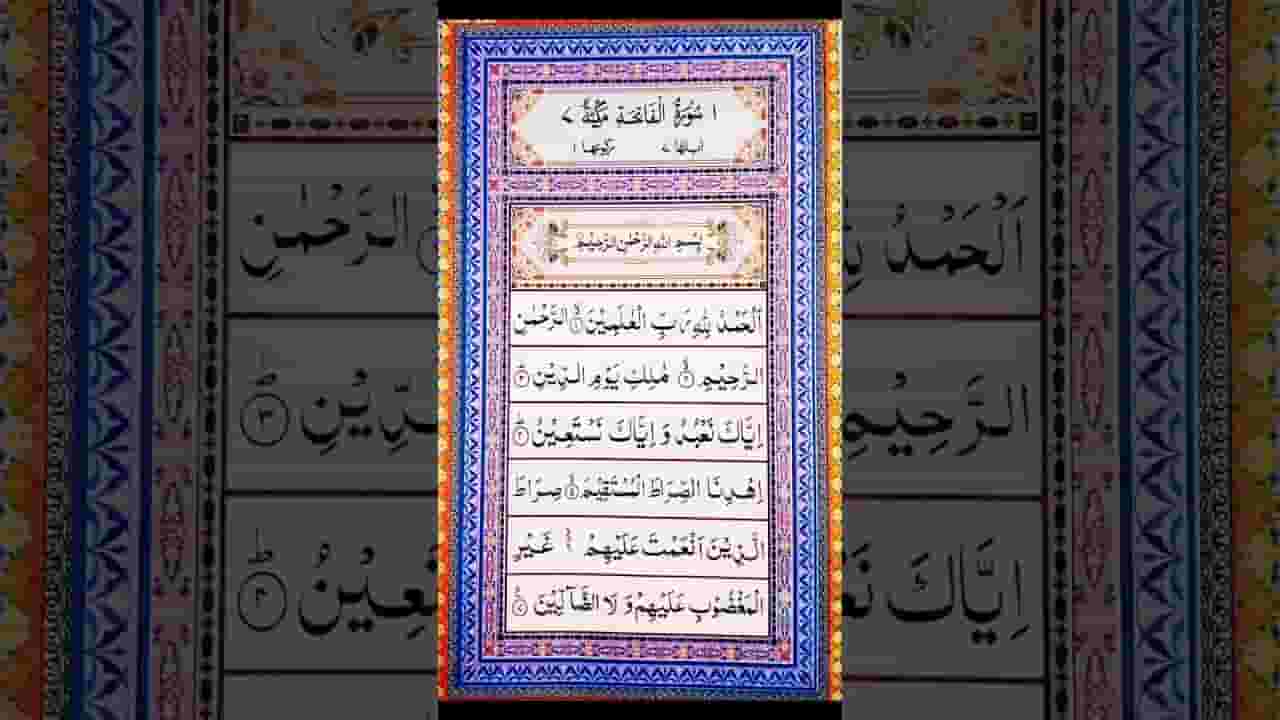 ١ سُوْرَةُ الْفَاتِحَةِ مَكِّيَّةٌ ٧
اٰيَاتُهَا ٧ رُكُوْعُهَا ١
بِسْمِ اللّٰهِ الرَّحْمٰنِ الرَّحِيْمِ
اَلْحَمْدُ لِلّٰهِ رَبِّ الْعٰلَمِيْنَ ۙ﴿١﴾ الرَّحْمٰنِ
الرَّحِيْمِ ۙ﴿٢﴾ مٰلِكِ يَوْمِ الدِّيْنِ ؕ﴿٣﴾
اِيَّاكَ نَعْبُدُ وَ اِيَّاكَ نَسْتَعِيْنُ ؕ﴿٤﴾
اِهْدِنَا الصِّرَاطَ الْمُسْتَقِيْمَ ۙ﴿٥﴾ صِرَاطَ
الَّذِيْنَ اَنْعَمْتَ عَلَيْهِمْ ۙ۬ غَيْرِ
الْمَغْضُوْبِ عَلَيْهِمْ وَ لَا الضَّآلِّيْنَ ۠﴿٧﴾